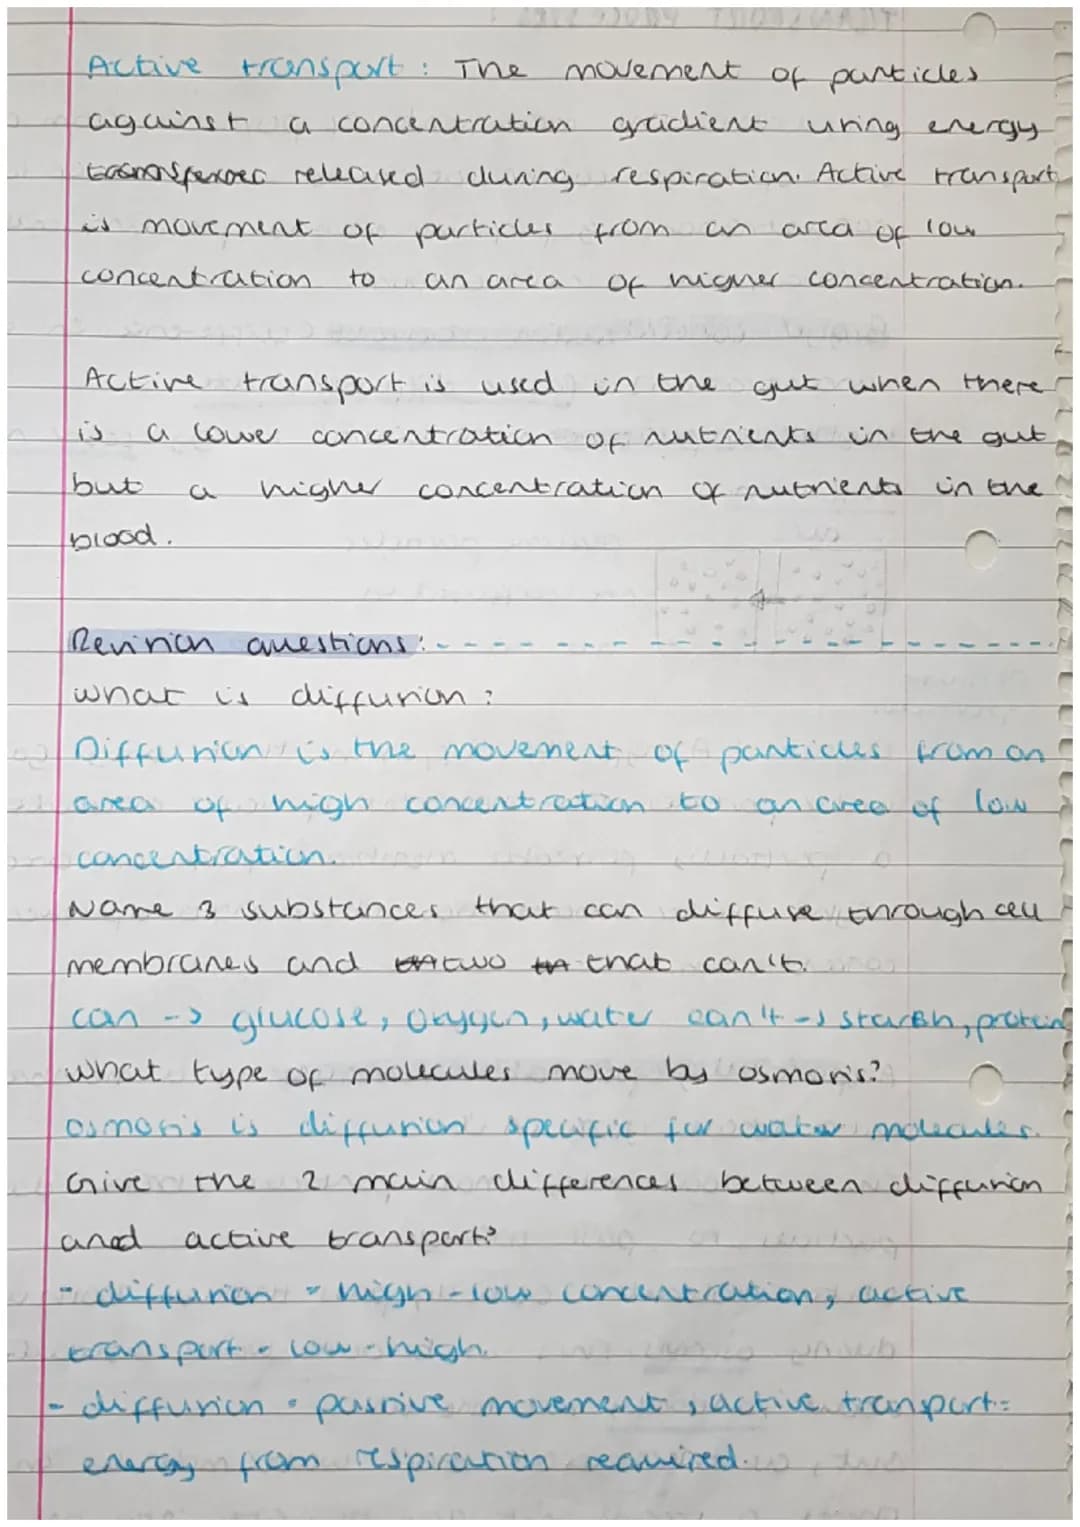 Active transport: The movement of particles
against a concentration gradient using energy
released during respiration. Active transport
is movement of particles from an area of low
concentration to an area of higher concentration.
Active transport is used in the gut when there
is a lower concentration of nutrients in the gut
but a higher concentration of nutrients in the
blood.
Revision questions:
what is diffusion?
Diffusion is the movement of particles from an
area of high concentration to an area of low
concentration.
Name 3 substances that can diffuse through cell
membranes and two that can't.
can -> glucose, oxygen, water can't -> starch, protein
what type of molecules move by osmosis?
osmosis is diffusion specific for water molecules.
Give the 2 main differences between diffusion
and active transport?
- diffusion - high - low concentration, active
transport - low - high.
- diffusion - passive movement, active transport =
energy from respiration required.